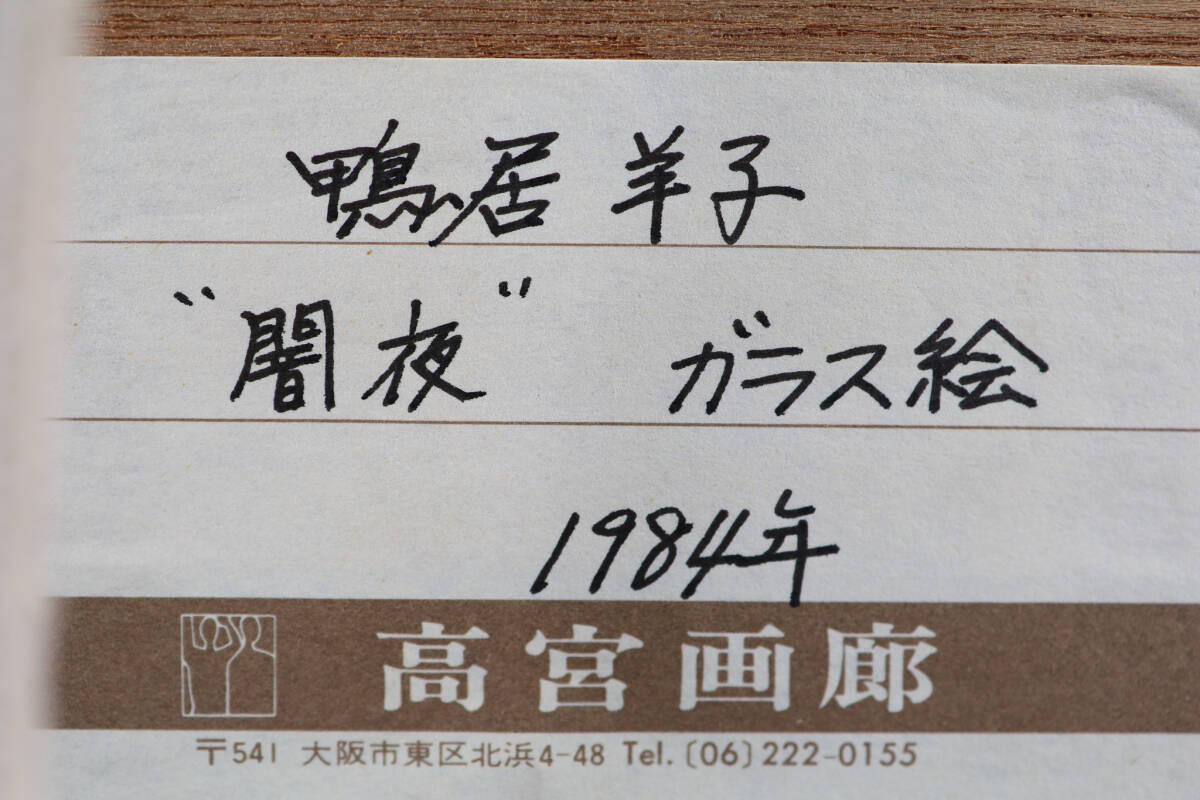 鴨居羊子
"闇夜" ガラス絵
1984年
高宮画廊
〒541 大阪市東区北浜4-48 Tel.〔06〕222-0155